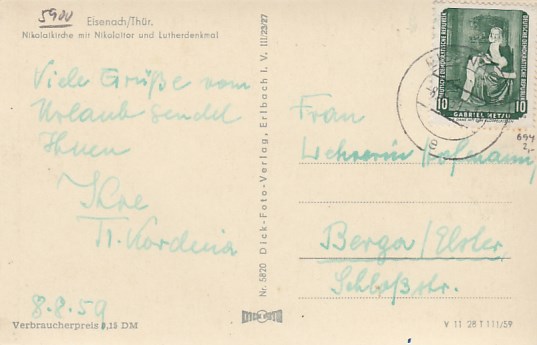 5900
Eisenach/Thür.
Nikolaikirche mit Nikolaitor und Lutherdenkmal
Viele Grüße vom
Urlaub sendet
Ihnen
Ihre
8.8.59
Verbraucherpreis 0,15 DM
Nr. 5820 Dick-Foto-Verlag, Erlbach i. V. III/23/27
DICK FOTO
DEUTSCHE DEMOKRATISCHE REPUBLIK
10 10
GABRIEL METSU
694
2,-
Frau
Lehrerin Hofmann
Berga/Elster
Schloßstr.
V 11 28 T 111/59